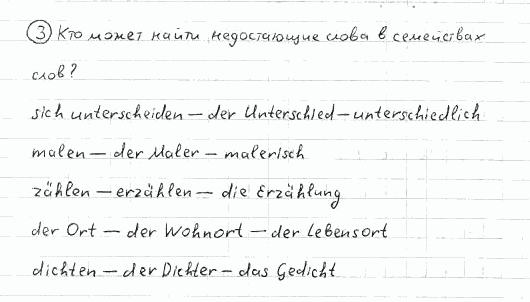 ③ Кто может найти недостающие слова в семействах
слов?
sich unterscheiden – der Unterschied – unterschiedlich
malen – der Maler – malerisch
zählen – erzählen – die Erzählung
der Ort – der Wohnort – der Lebensort
dichten – der Dichter – das Gedicht